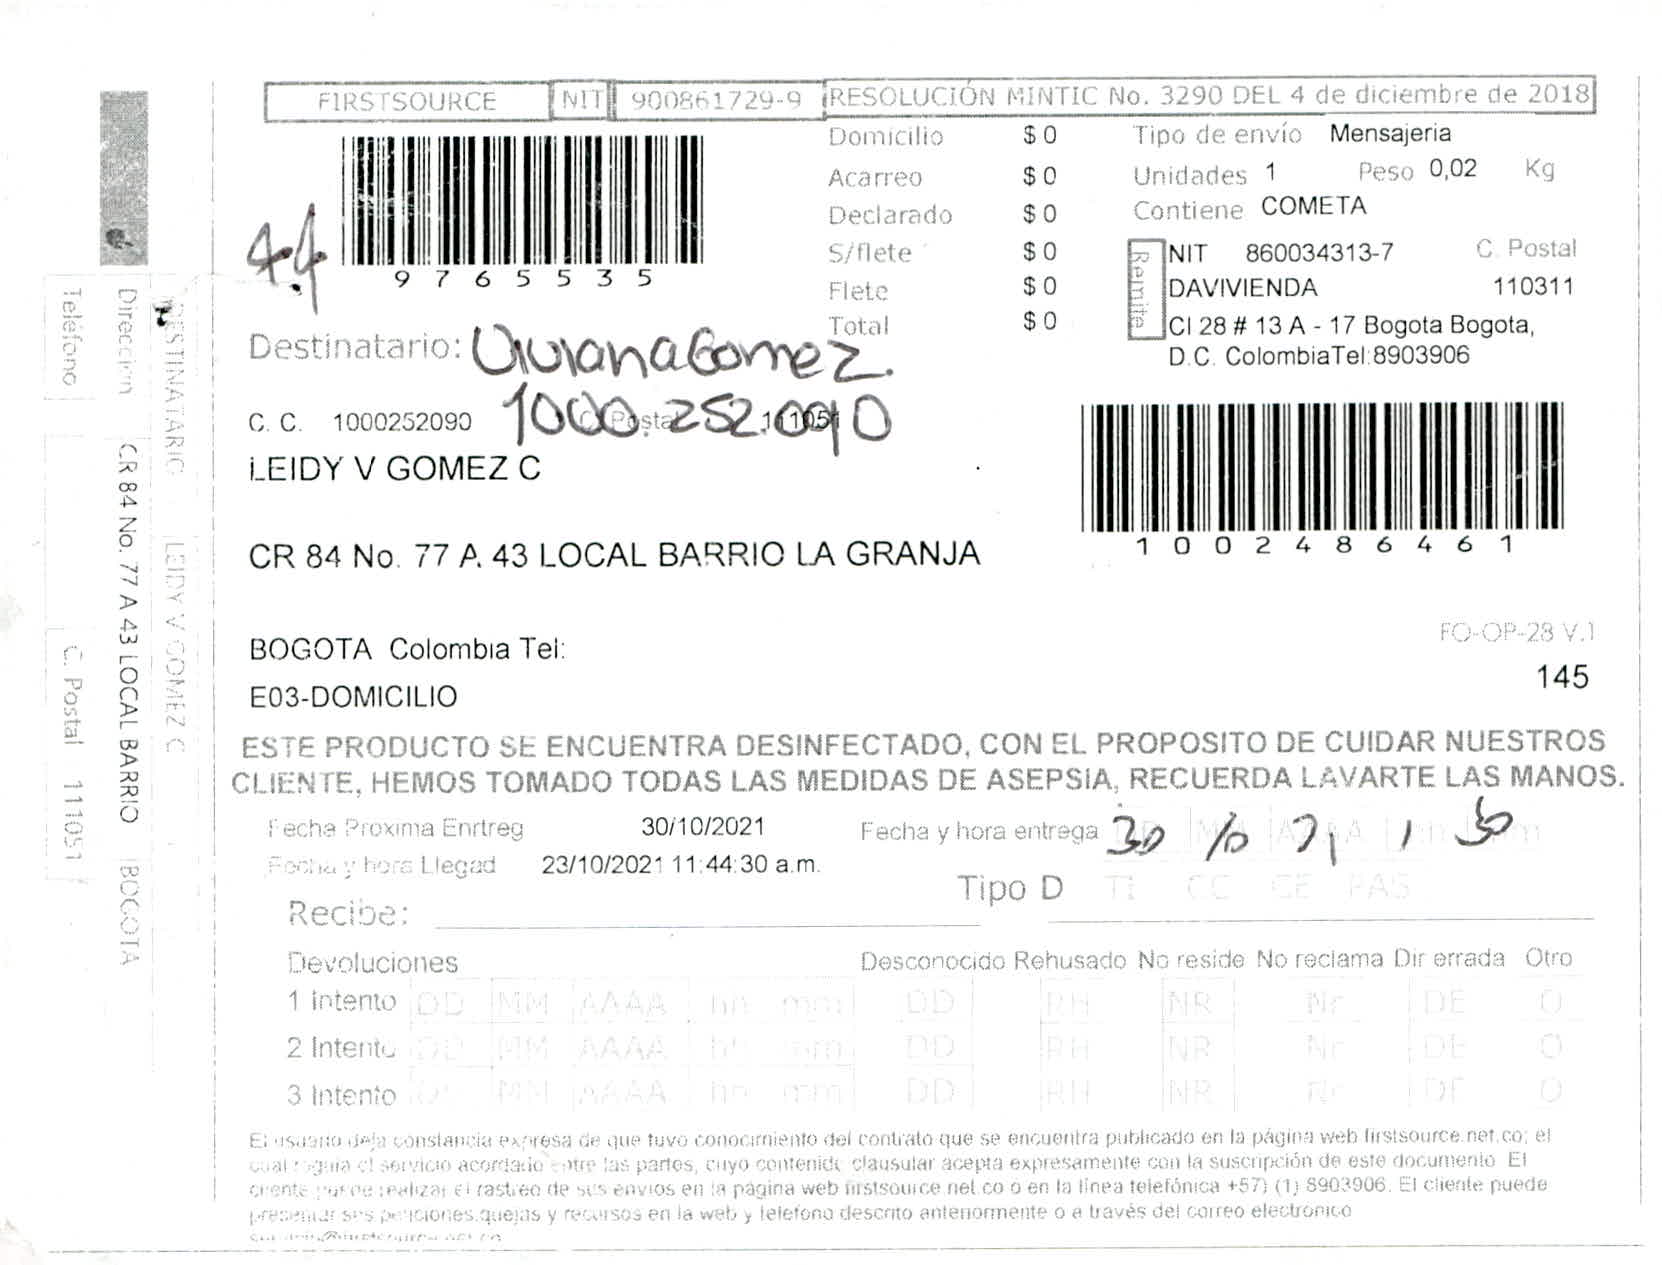 FIRSTSOURCE NIT 900861729-9 RESOLUCIÓN MINTIC No. 3290 DEL 4 de diciembre de 2018
Domicilio $ 0 Tipo de envío Mensajeria
Acarreo $ 0 Unidades 1 Peso 0,02 Kg
Declarado $ 0 Contiene COMETA
44
9765535
S/flete $ 0
Flete $ 0
Total $ 0
Remite
NIT 860034313-7 C. Postal
DAVIVIENDA 110311
Cl 28 # 13 A - 17 Bogota Bogota,
D.C. ColombiaTel:8903906
Destinatario: Viviana Gomez.
1000.252.090
C. C. 1000252090 C. Postal 111051
LEIDY V GOMEZ C
1002486461
CR 84 No. 77 A 43 LOCAL BARRIO LA GRANJA
BOGOTA Colombia Tel:
FO-OP-28 V.1
145
E03-DOMICILIO
ESTE PRODUCTO SE ENCUENTRA DESINFECTADO, CON EL PROPOSITO DE CUIDAR NUESTROS
CLIENTE, HEMOS TOMADO TODAS LAS MEDIDAS DE ASEPSIA, RECUERDA LAVARTE LAS MANOS.
Fecha Proxima Enrtreg 30/10/2021 Fecha y hora entrega 30 10 21 1 30
Fecha y hora Llegad 23/10/2021 11:44:30 a.m.
Tipo D TI CC CE PAS
Recibe:
Devoluciones Desconocido Rehusado No reside No reclama Dir errada Otro
1 Intento DD MM AAAA hh mm DD RH NR Nr DE O
2 Intento DD MM AAAA hh mm DD RH NR Nr DE O
3 Intento DD MM AAAA hh mm DD RH NR Nr DE O
El usuario deja constancia expresa de que tuvo conocimiento del contrato que se encuentra publicado en la página web firstsource.net.co; el
cual regula el servicio acordado entre las partes, cuyo contenido clausular acepta expresamente con la suscripción de este documento El
cliente puede realizar el rastreo de sus envios en la página web firstsource.net.co o en la línea telefónica +57) (1) 8903906. El cliente puede
presentar sus peticiones,quejas y recursos en la web y telefono descrito anteriormente o a través del correo electronico
DESTINATARIO LEIDY V GOMEZ C
Direccion CR 84 No. 77 A 43 LOCAL BARRIO BOGOTA
Teléfono C. Postal 111051